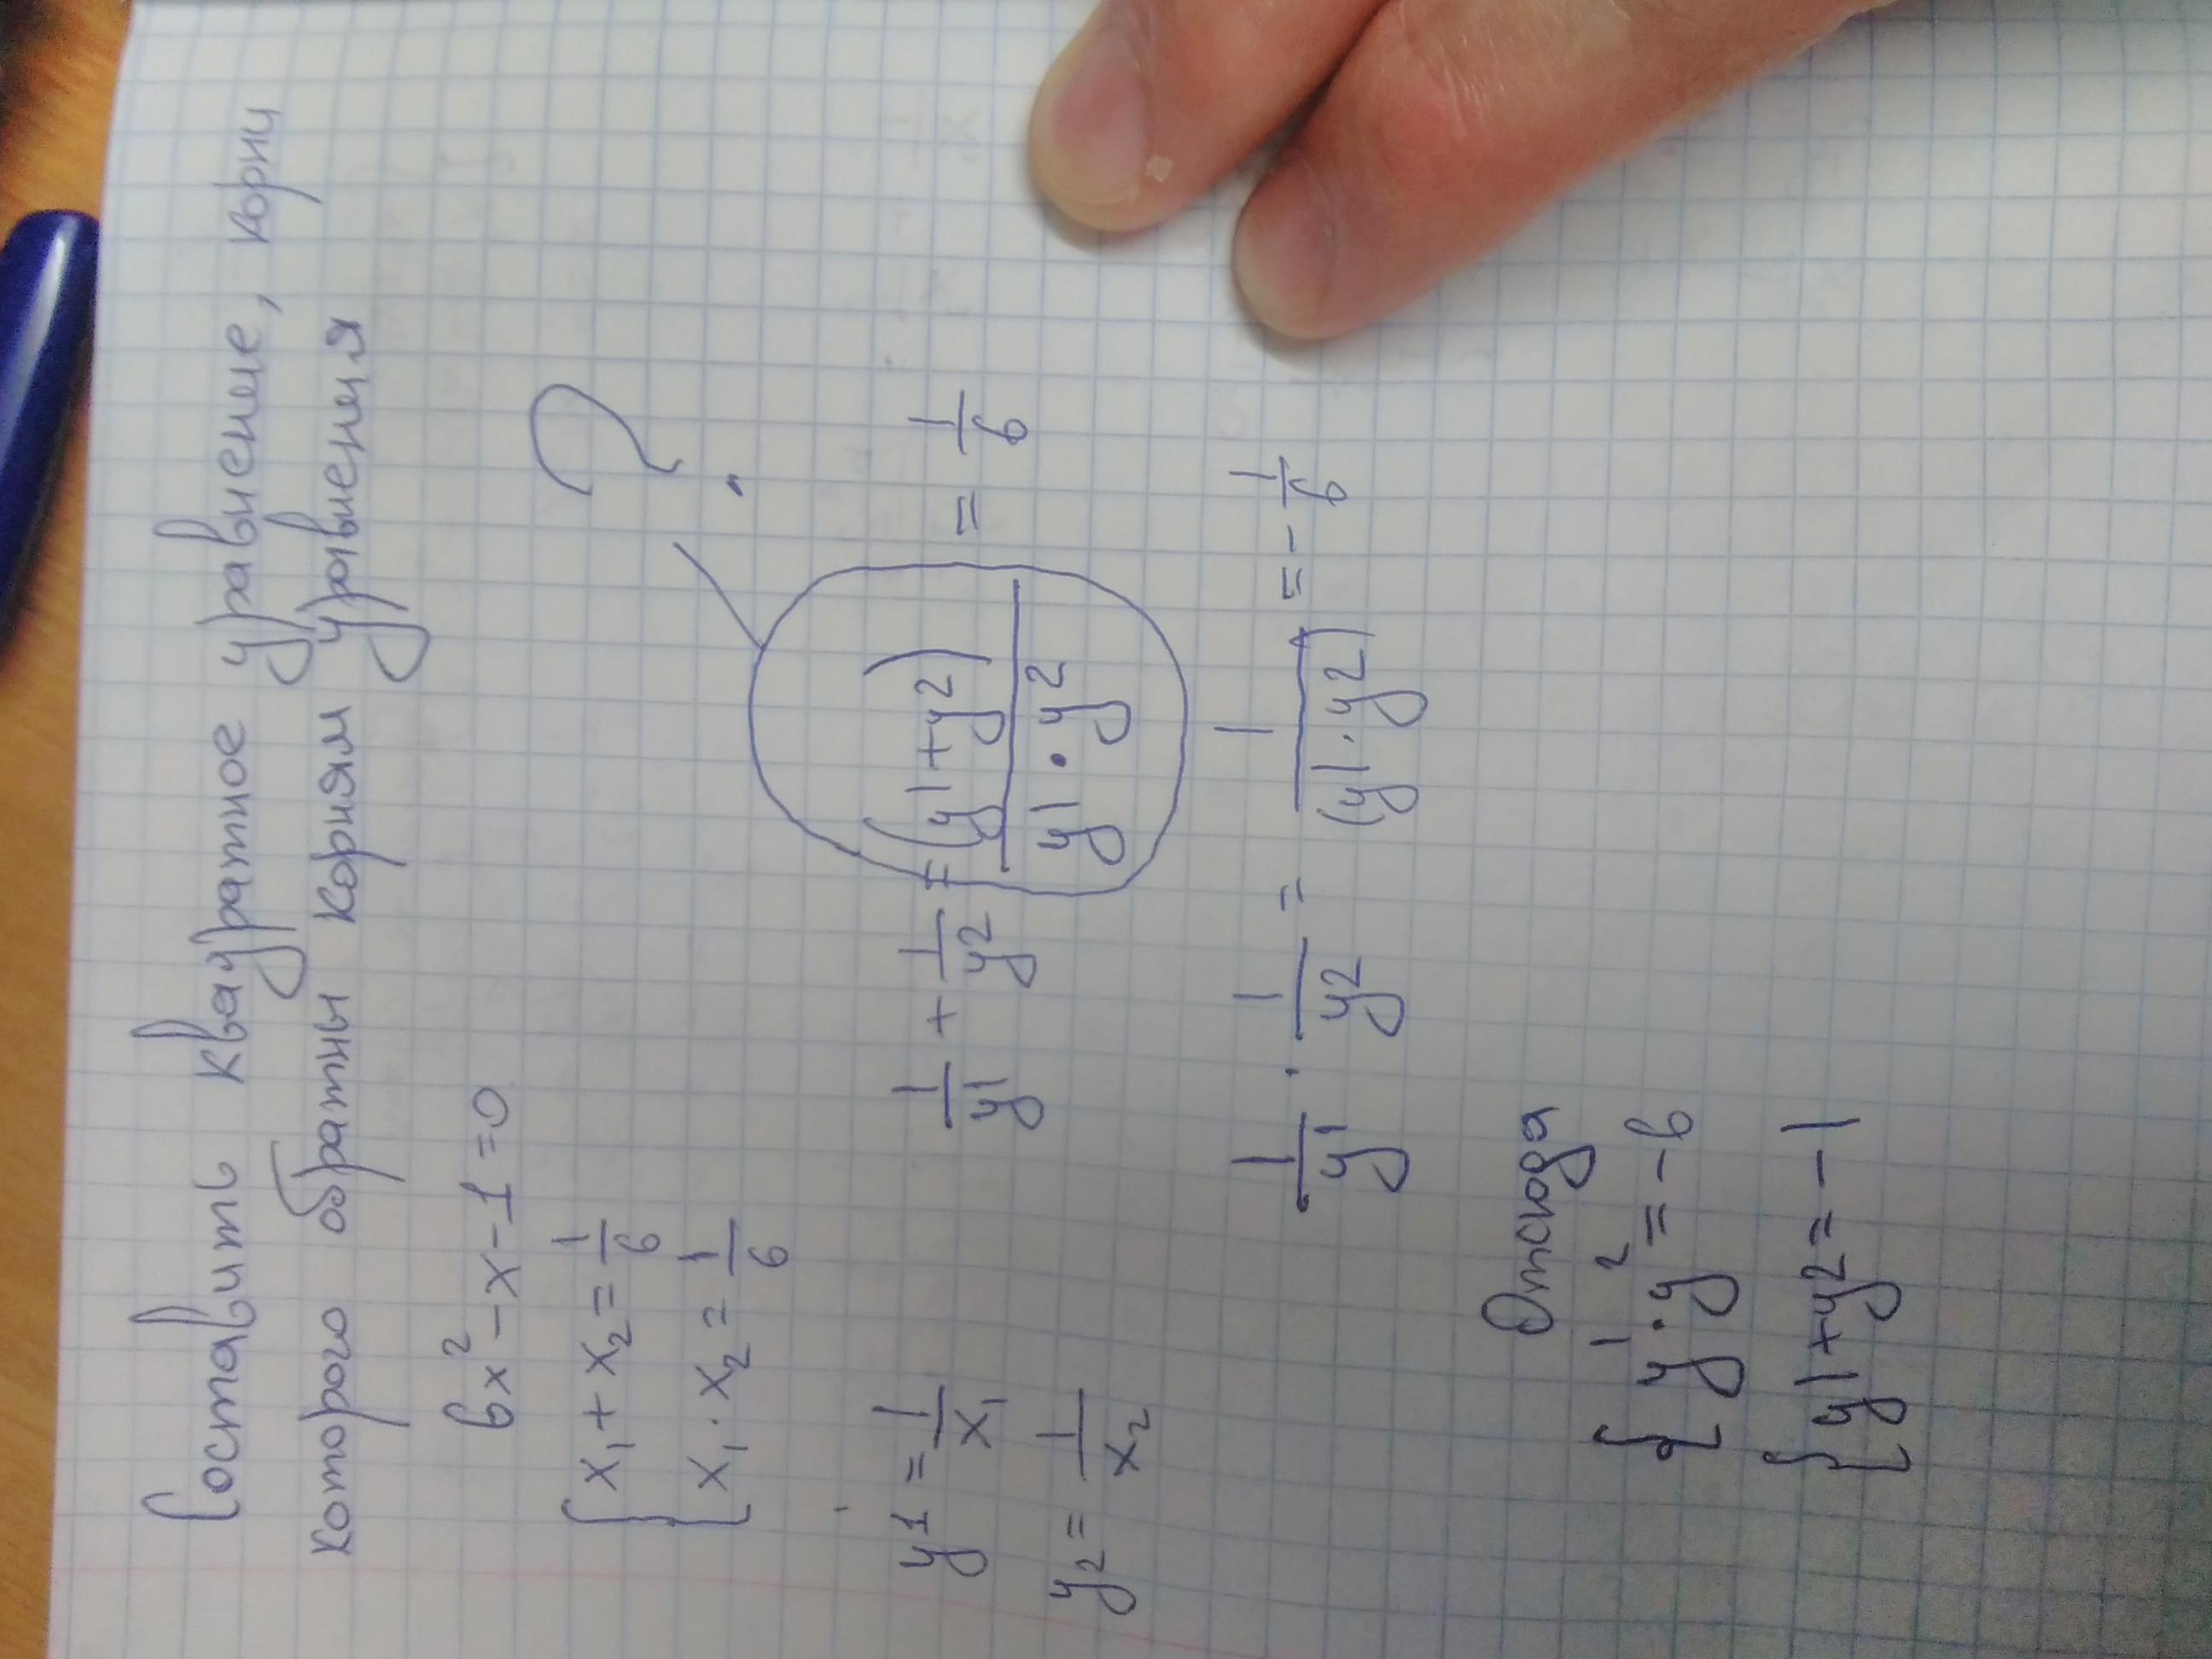 Составить квадратное уравнение, корни
которого обратны корням уравнения
6x² - x - 1 = 0
{ x₁ + x₂ = 1/6
{ x₁ · x₂ = 1/6
?
y1 = 1/x₁
y₂ = 1/x₂
1/y1 + 1/y2 = (y1+y2)/(y1 · y2) = 1/6
1/y1 · 1/y2 = 1/(y1 · y2) = -1/6
Отсюда
{ y1 · y2 = -6
{ y1 + y2 = -1